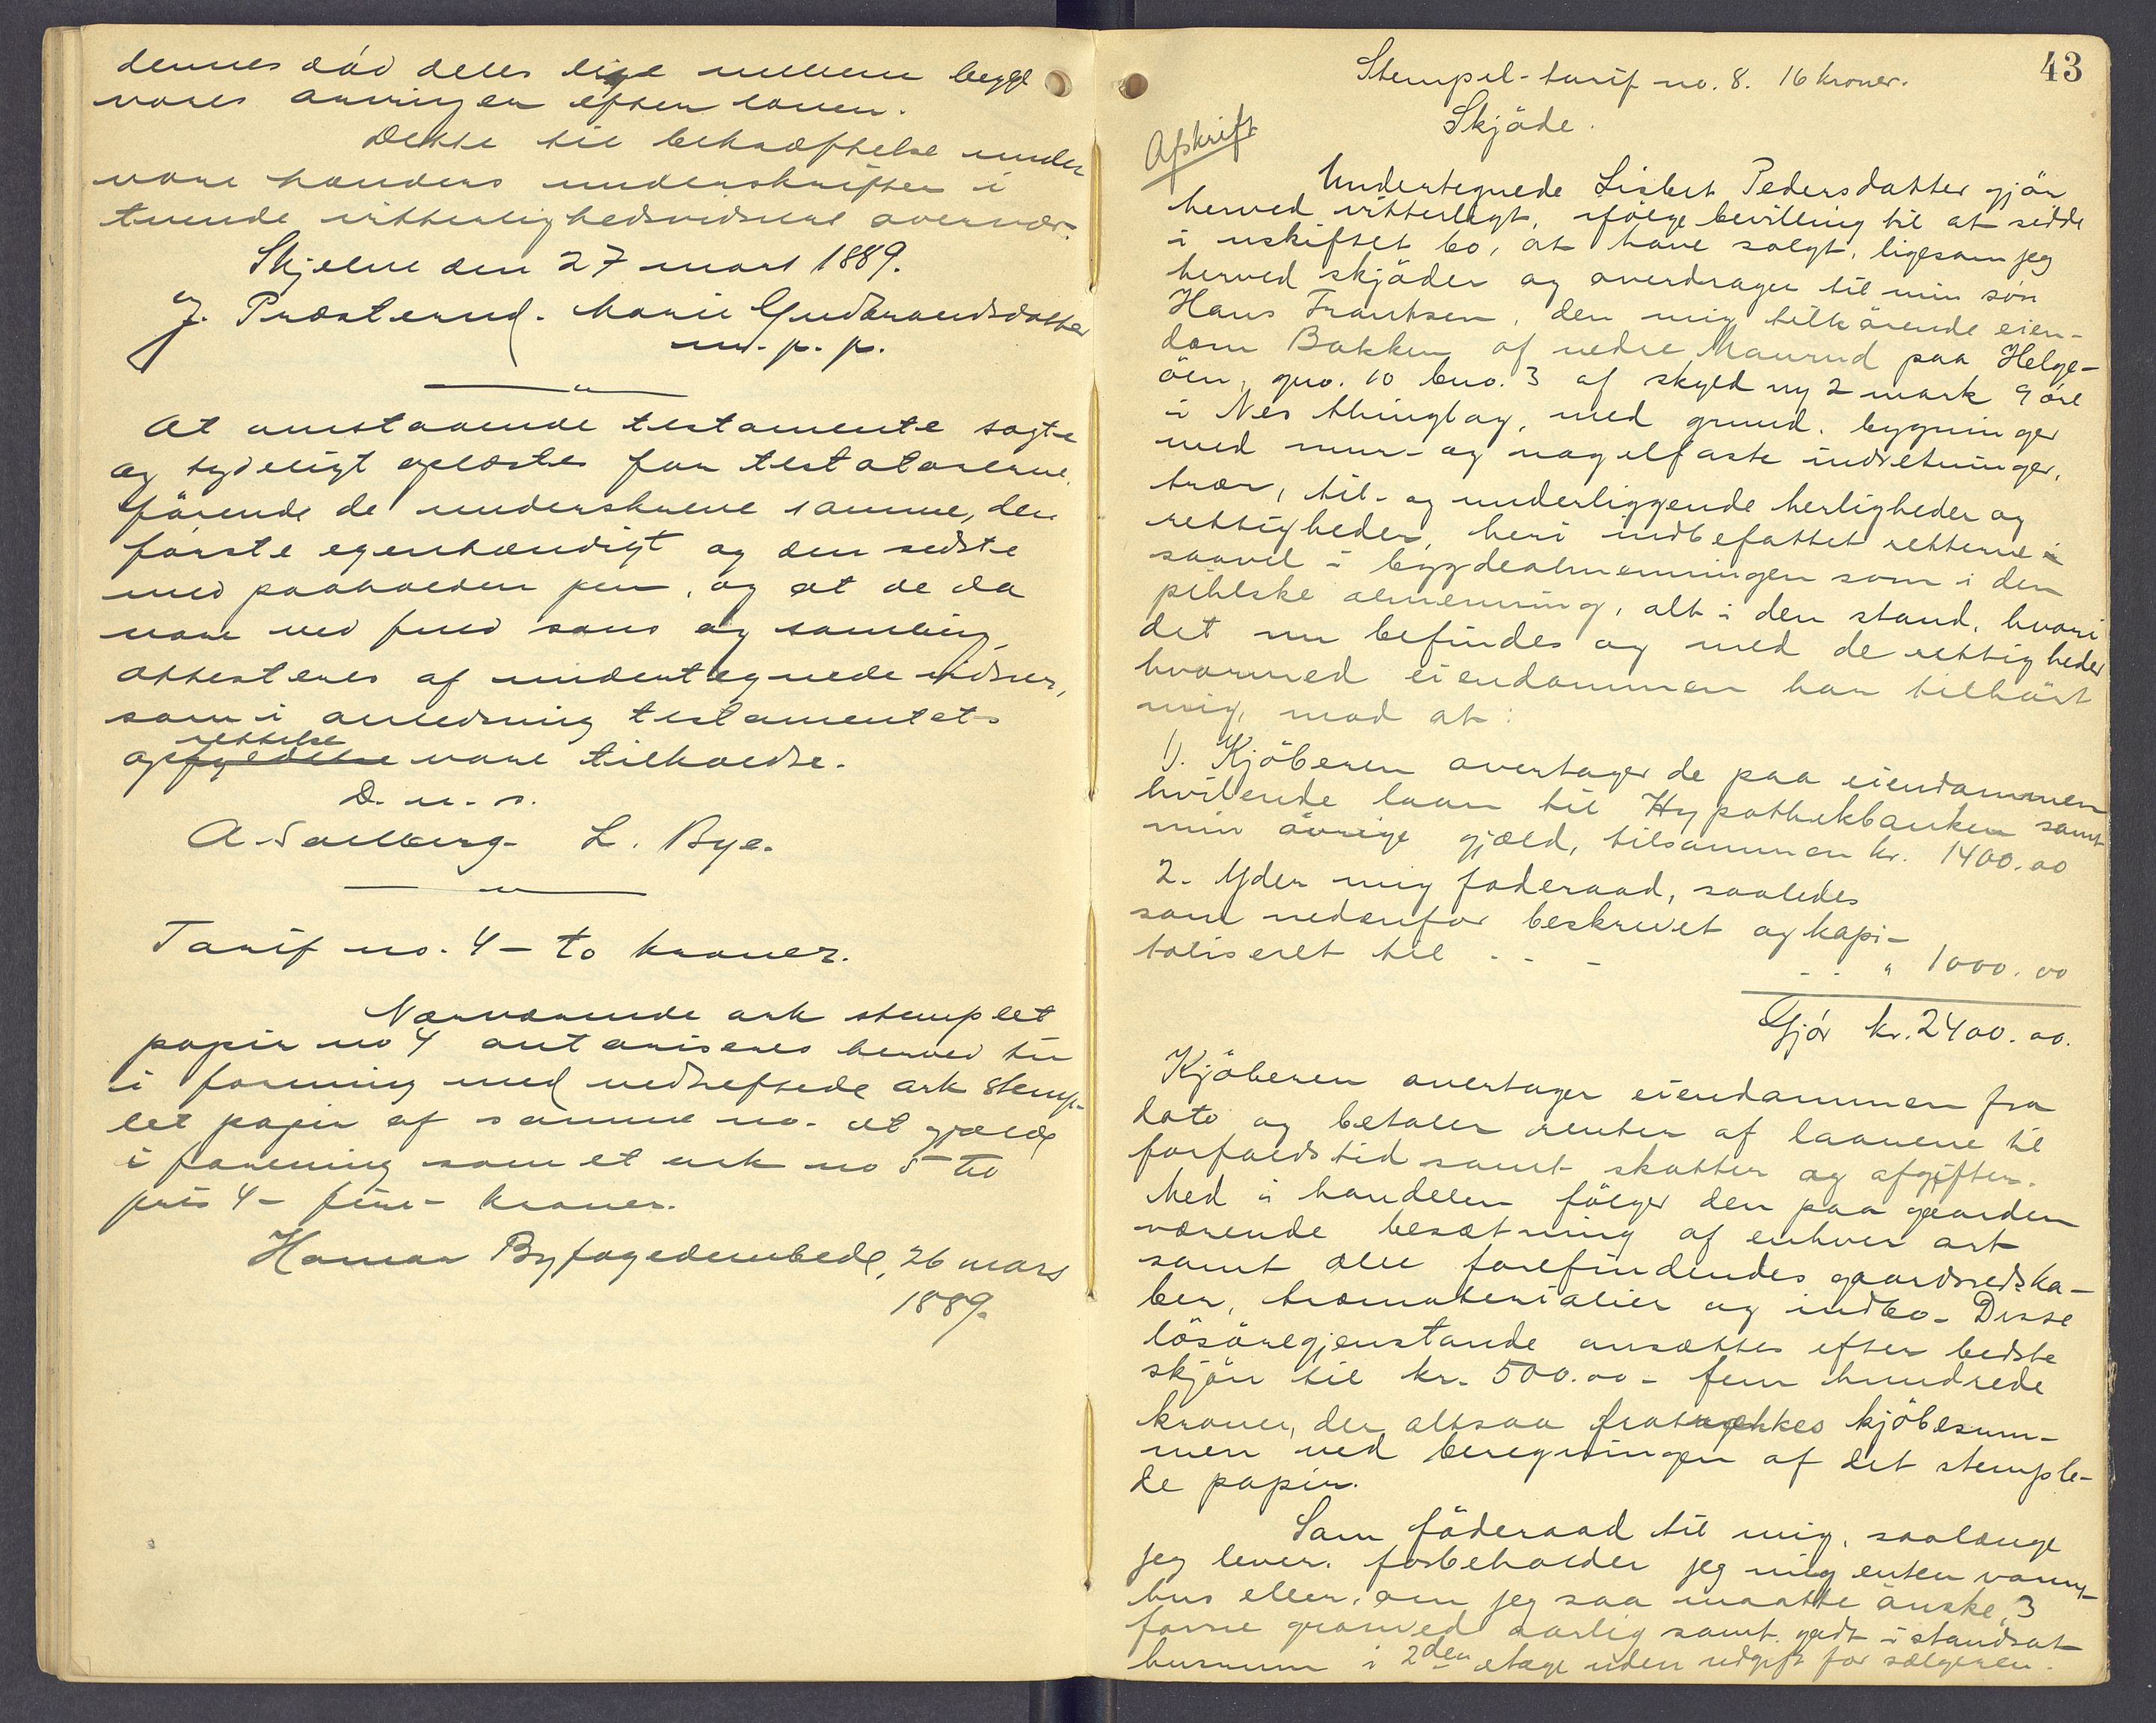 dennes död deles lige mellem begge
vores arvinger efter loven.
Dette til bekræftelse under
vore hænders underskrifter i
tvende vitterlighedsvidners overvær.
Skjelve den 27 mars 1889.
J. Præsterud. Marie Gudbrandsdatter
m. p. p.
At omstaaende testamente sagte
og tydeligt oplæstes for testatorerne,
förende de underskreve samme, den
förste egenhændigt og den sidste
med paaholden pen, og at de da
vare ved fuld sans og samling,
attesteres af undertegnede vidner,
som i anledning testamentets
rettelse
opfyldelse vare tilkaldte.
D. u. s.
A. Solberg. L. Bye.
Tarif no. 4 - to kroner.
Nærværende ark stemplet
papir no 4 autoriseres herved til
i forening med vedheftede ark stemp-
let papir af samme no. at gjælde
i forening som et ark no 5 til
pris 4 - fire - kroner.
Hamar Byfogedembede, 26 mars
1889.
43
Stempel-tarif no. 8. 16 kroner.
Skjöde.
Afskrift
Undertegnede Lisbet Pedersdatter gjör
herved vitterligt, ifölge bevilling til at sidde
i uskiftet bo, at have solgt, ligesom jeg
herved skjöder og overdrager til min sön
Hans Frantsen, den mig tilhörende eien-
dom Bakken af nedre Maurud paa Helge-
öen, gno. 10 bno. 3 af skyld ny 2 mark 9 öre
i Nes thinglag, med grund, bygninger
med mur- og nagelfaste indretninger,
træer, til- og underliggende herligheder og
rettigheder, heri indbefattet retterne i
saavel i bygdealmenningen som i den
pihlske almenning, alt i den stand, hvori
det nu befindes og med de rettigheder
hvormed eiendommen har tilhört
mig, mod at:
1). Kjöberen overtager de paa eiendommen
hvilende laan til Hypothekbanken samt
min övrige gjæld, tilsammen kr. 1400.00
2. Yder mig föderaad, saaledes
som nedenfor beskrevet og kapi-
taliseret til - - - - - " 1000.00
Gjör kr. 2400.00.
Kjöberen overtager eiendommen fra
dato og betaler renter af laanene til
forfaldstid samt skatter og afgifter.
Med i handelen fölger den paa gaarden
værende besætning af enhver art
samt alle forefindendes gaardsredska-
ber, træmaterialier og indbo. Disse
lösöregjenstande ansættes efter bedste
skjön til kr. 500.00 - fem hundrede
kroner, der altsaa fratrækkes kjöbesum-
men ved beregningen af det stemple-
de papir.
Som föderaad til mig, saalænge
jeg lever, forbeholder jeg mig enten vaanings-
hus eller, om jeg saa maatte önske, 3
favne granved aarlig samt godt istandsat
husrum i 2den etage uden udgift for sælgeren.